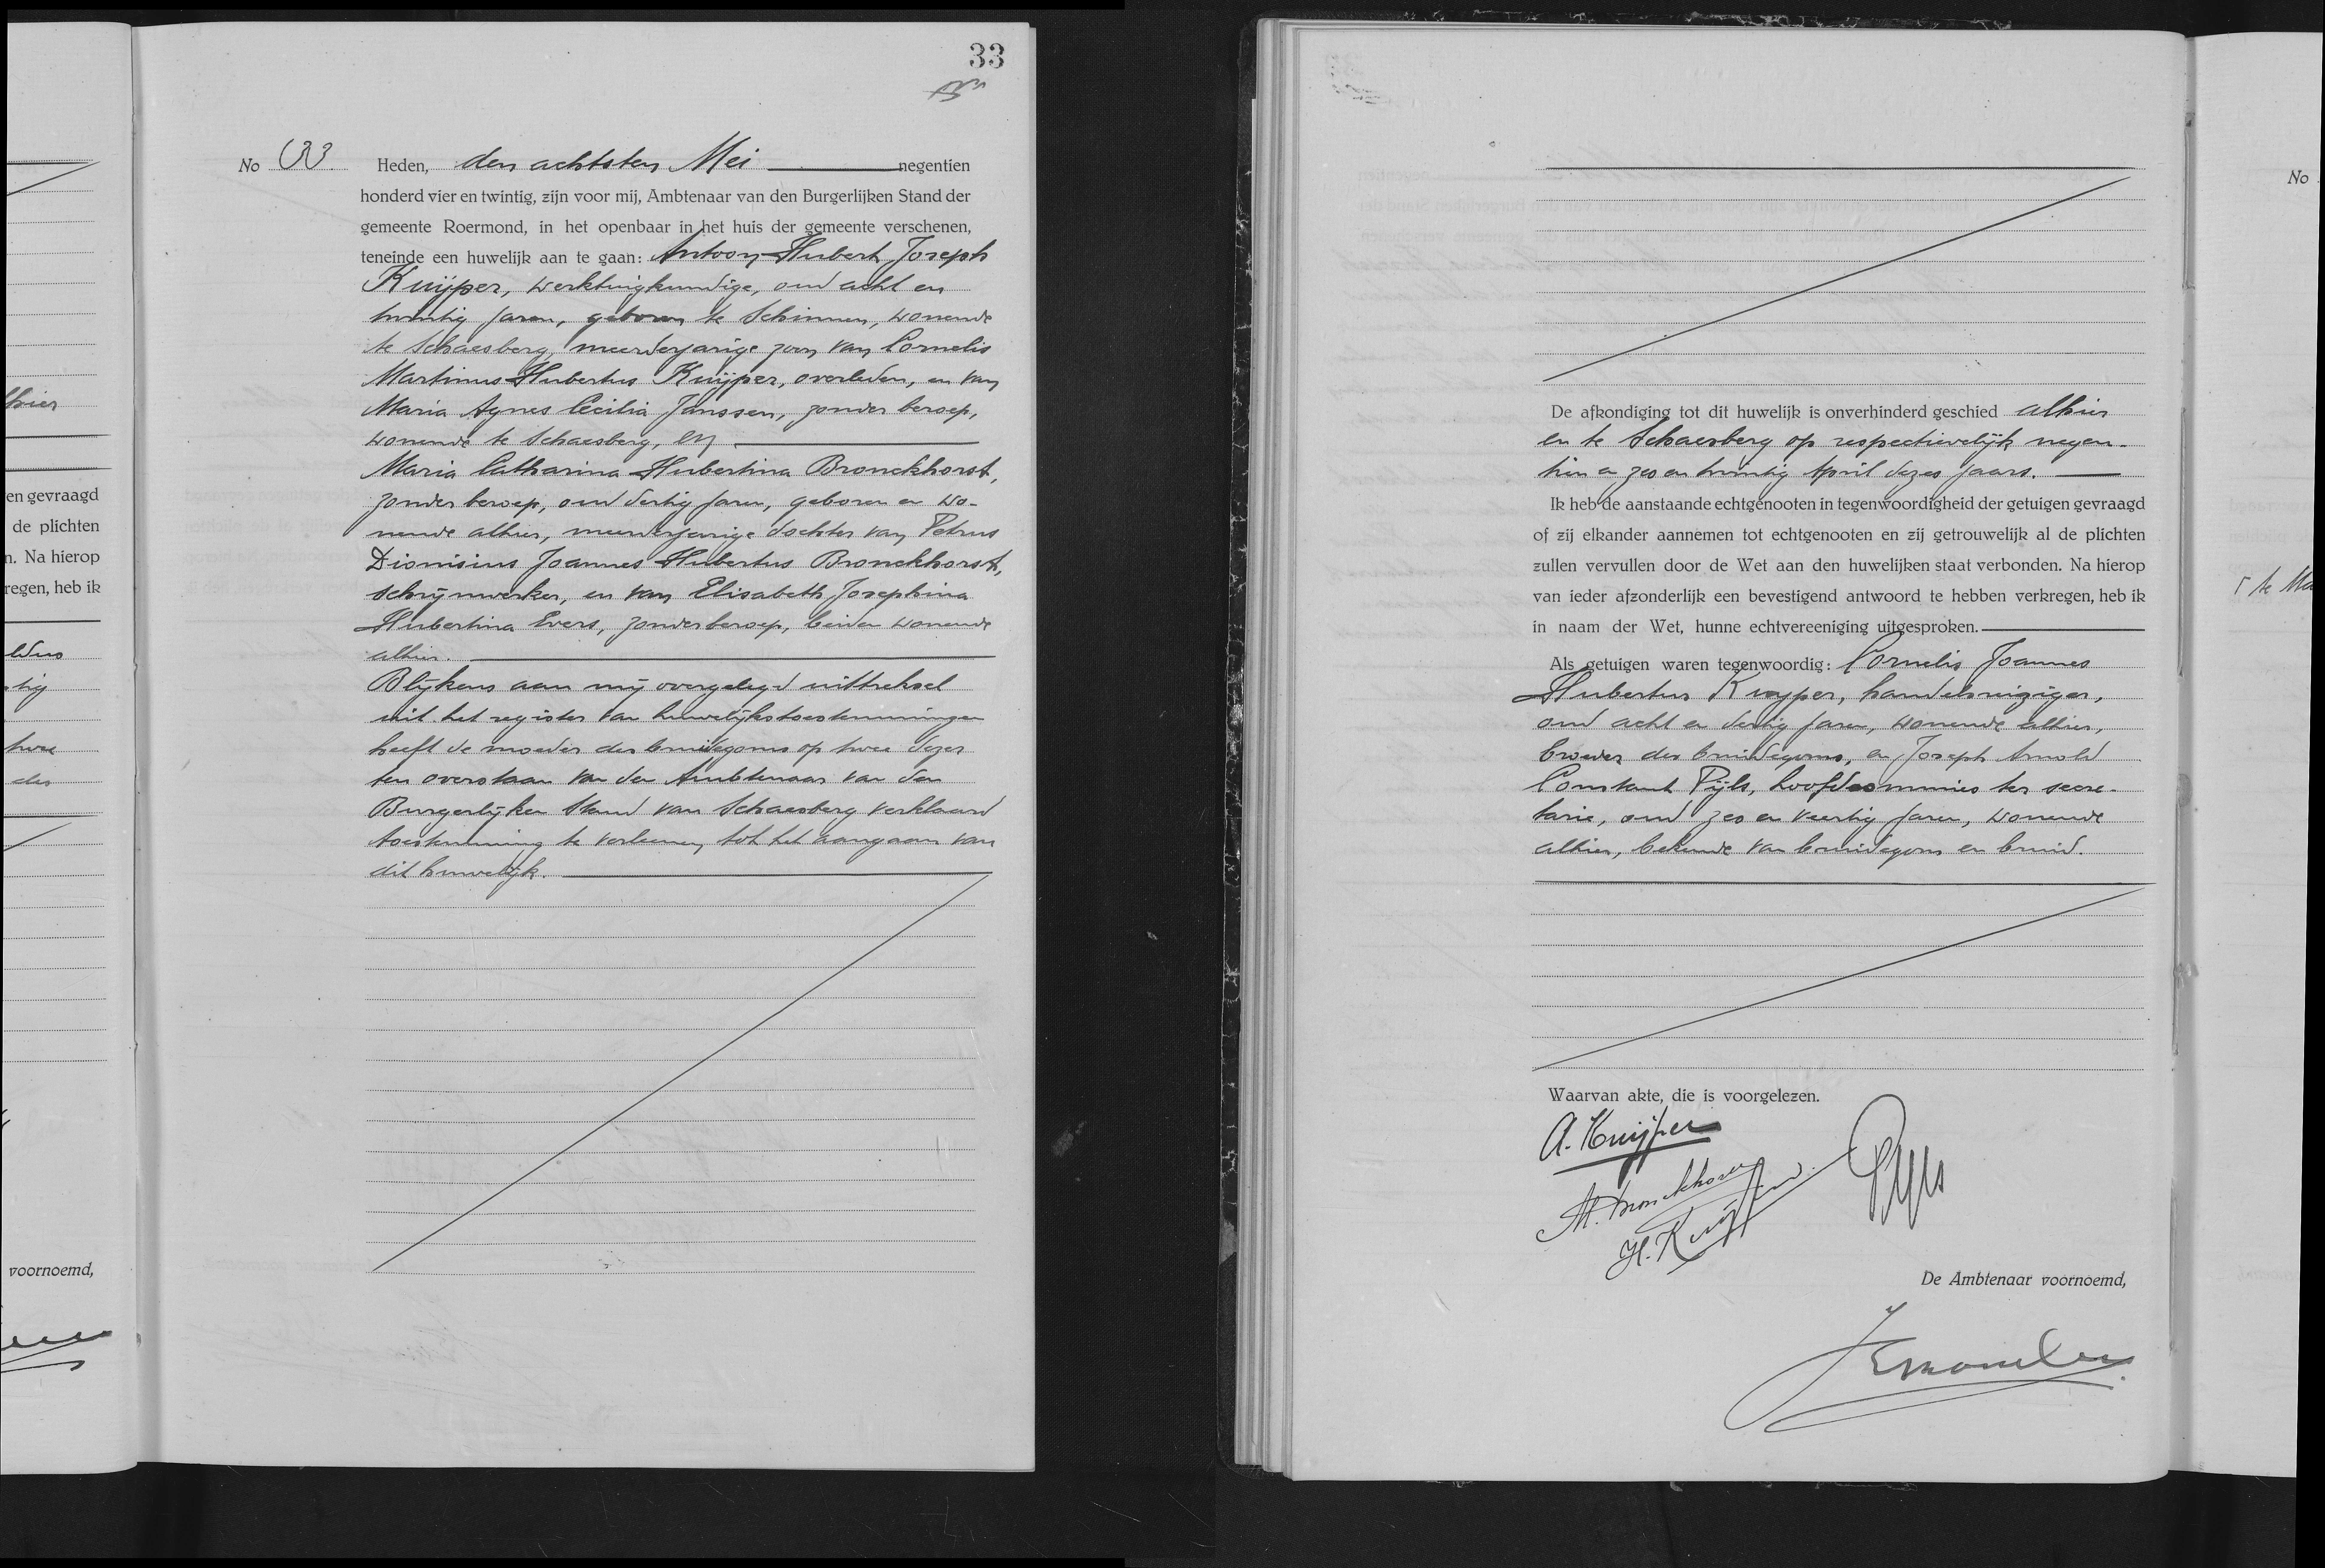 33
No 33. Heden, den achtsten Mei negentien
honderd vier en twintig, zijn voor mij, Ambtenaar van den Burgerlijken Stand der
gemeente Roermond, in het openbaar in het huis der gemeente verschenen,
teneinde een huwelijk aan te gaan: Antoon Hubert Joseph
Kuijper, werktuigkundige, oud acht en
twintig jaren, geboren te Schinnen, wonende
te Schaesberg, meerderjarige zoon van Cornelis
Martinus Hubertus Kuijper, overleden, en van
Maria Agnes Cecilia Janssen, zonder beroep,
wonende te Schaesberg, en
Maria Catharina Hubertina Bronckhorst,
zonder beroep, oud dertig jaren, geboren en wo-
nende alhier, meerderjarige dochter van Petrus
Dionisius Joannes Hubertus Bronckhorst,
schrijnwerker, en van Elisabeth Josephina
Hubertina Evers, zonder beroep, beiden wonende
alhier.
Blijkens aan mij overgelegd uittreksel
uit het register van huwelijkstoestemmingen
heeft de moeder des bruidegoms op twee dezer
ten overstaan van den Ambtenaar van den
Burgerlijken Stand van Schaesberg verklaard
toestemming te verleenen tot het aangaan van
dit huwelijk.
hier
en gevraagd
de plichten
n. Na hierop
regen, heb ik
tig
twee
des
voornoemd,
De afkondiging tot dit huwelijk is onverhinderd geschied alhier
en te Schaesberg op respectievelijk negen-
tien en zes en twintig April dezes jaars.
Ik heb de aanstaande echtgenooten in tegenwoordigheid der getuigen gevraagd
of zij elkander aannemen tot echtgenooten en zij getrouwelijk al de plichten
zullen vervullen door de Wet aan den huwelijken staat verbonden. Na hierop
van ieder afzonderlijk een bevestigend antwoord te hebben verkregen, heb ik
in naam der Wet, hunne echtvereeniging uitgesproken.
Als getuigen waren tegenwoordig: Cornelis Joannes
Hubertus Kuyper, handelsreiziger,
oud acht en dertig jaren, wonende alhier,
broeder des bruidegoms, en Joseph Arnold
Constant Pijls, hoofdcommies ter secre-
tarie, oud zes en veertig jaren, wonende
alhier, bekende van bruidegom en bruid.
Waarvan akte, die is voorgelezen.
A. Kuijper
M. Bronckhorst
H. Kuijper
Pijls
De Ambtenaar voornoemd,
No